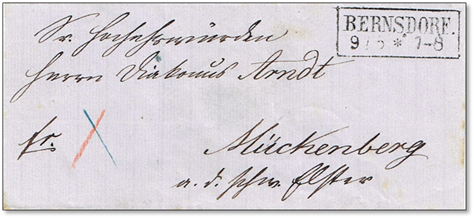 BERNSDORF.
9/5 * 7-8
Sr. Hochehrwürden
Herrn Diakonus Arndt
fr.
Mückenberg
a. d. schw. Elster